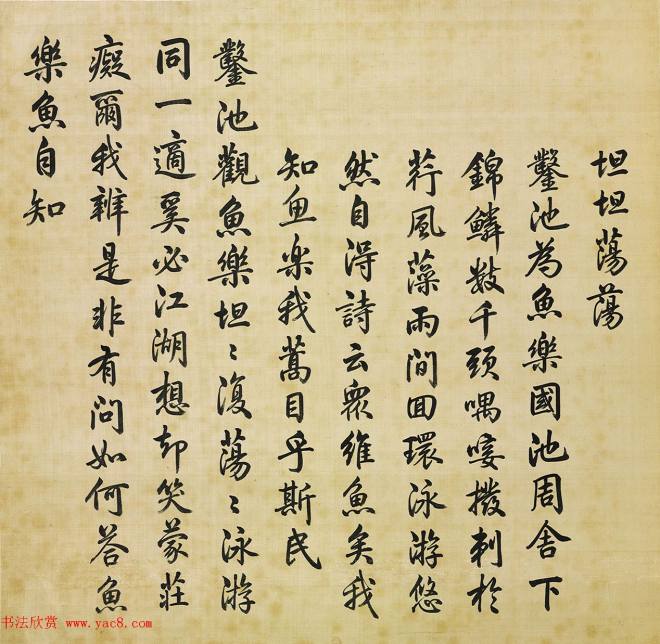 坦坦蕩蕩
鑿池為魚樂國池周舍下
錦鱗數千頭喁唼撥刺於
荇風藻雨間回環泳游悠
然自得詩云眾維魚矣我
知魚楽我蒿目乎斯民
鑿池觀魚樂坦〻復蕩〻泳游
同一適奚必江湖想却笑蒙莊
癡爾我辨是非有問如何答魚
樂魚自知
书法欣赏 www.yac8.com